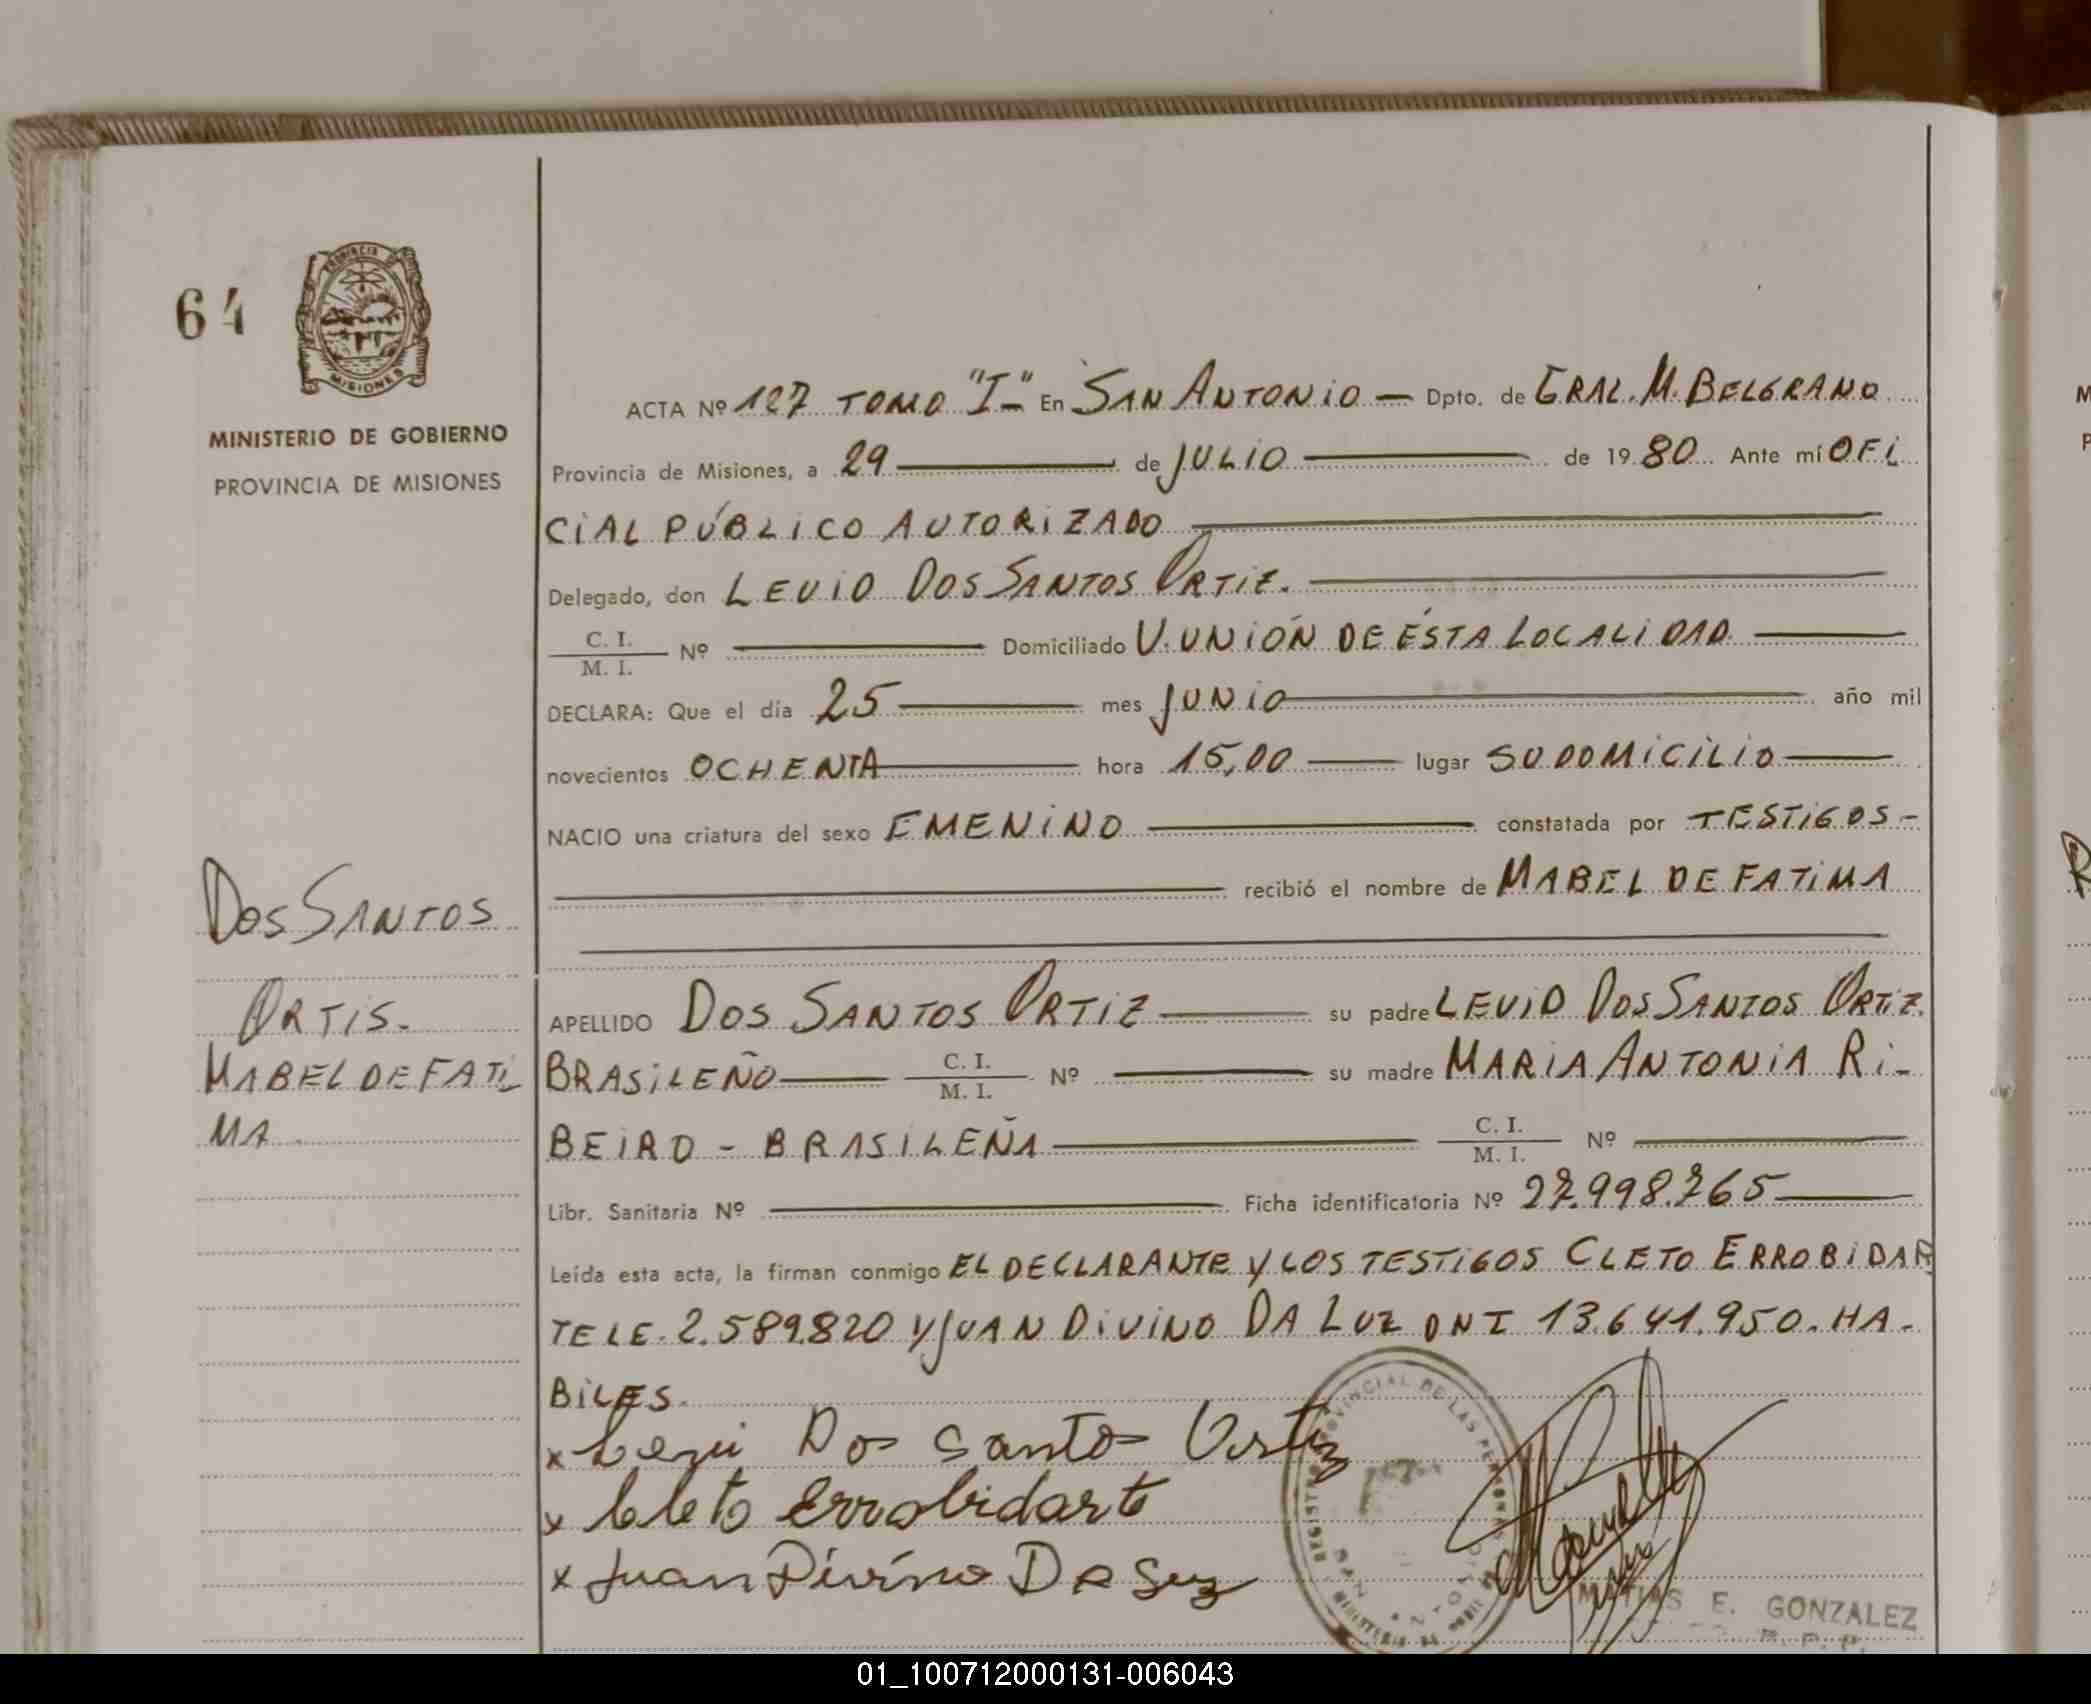 64
PROVINCIA DE
MISIONES
MINISTERIO DE GOBIERNO
PROVINCIA DE MISIONES
ACTA Nº 127 TOMO "I" - En SAN ANTONIO - Dpto. de GRAL. M. BELGRANO
Provincia de Misiones, a 29 de JULIO de 1980 Ante mí OFI
CIAL PÚBLICO AUTORIZADO
Delegado, don LEVID DOS SANTOS ORTIZ.
C. I.
M. I. Nº Domiciliado V. UNIÓN DE ÉSTA LOCALIDAD
DECLARA: Que el día 25 mes JUNIO año mil
novecientos OCHENTA hora 15,00 lugar SU DOMICILIO
NACIO una criatura del sexo FEMENINO constatada por TESTIGOS -
recibió el nombre de MABEL DE FATIMA
DOS SANTOS
ORTIS.
MABEL DE FATI
MA
APELLIDO DOS SANTOS ORTIZ su padre LEVID DOS SANTOS ORTIZ.
BRASILEÑO C. I.
M. I. Nº su madre MARIA ANTONIA RI-
BEIRO - BRASILEÑA C. I.
M. I. Nº
Libr. Sanitaria Nº Ficha identificatoria Nº 27.998.765
Leída esta acta, la firman conmigo EL DECLARANTE Y LOS TESTIGOS CLETO ERROBIDAR
TE LE. 2.589.820 Y JUAN DIVINO DA LUZ DNI 13.641.950. HA-
BILES.
x Levi Dos Santos Ortiz
x Cleto Errobidarte
x Juan Divino Da Luz
REGISTRO PROVINCIAL DE LAS PERSONAS
SAN ANTONIO
MATIAS E. GONZALEZ
01_100712000131-006043